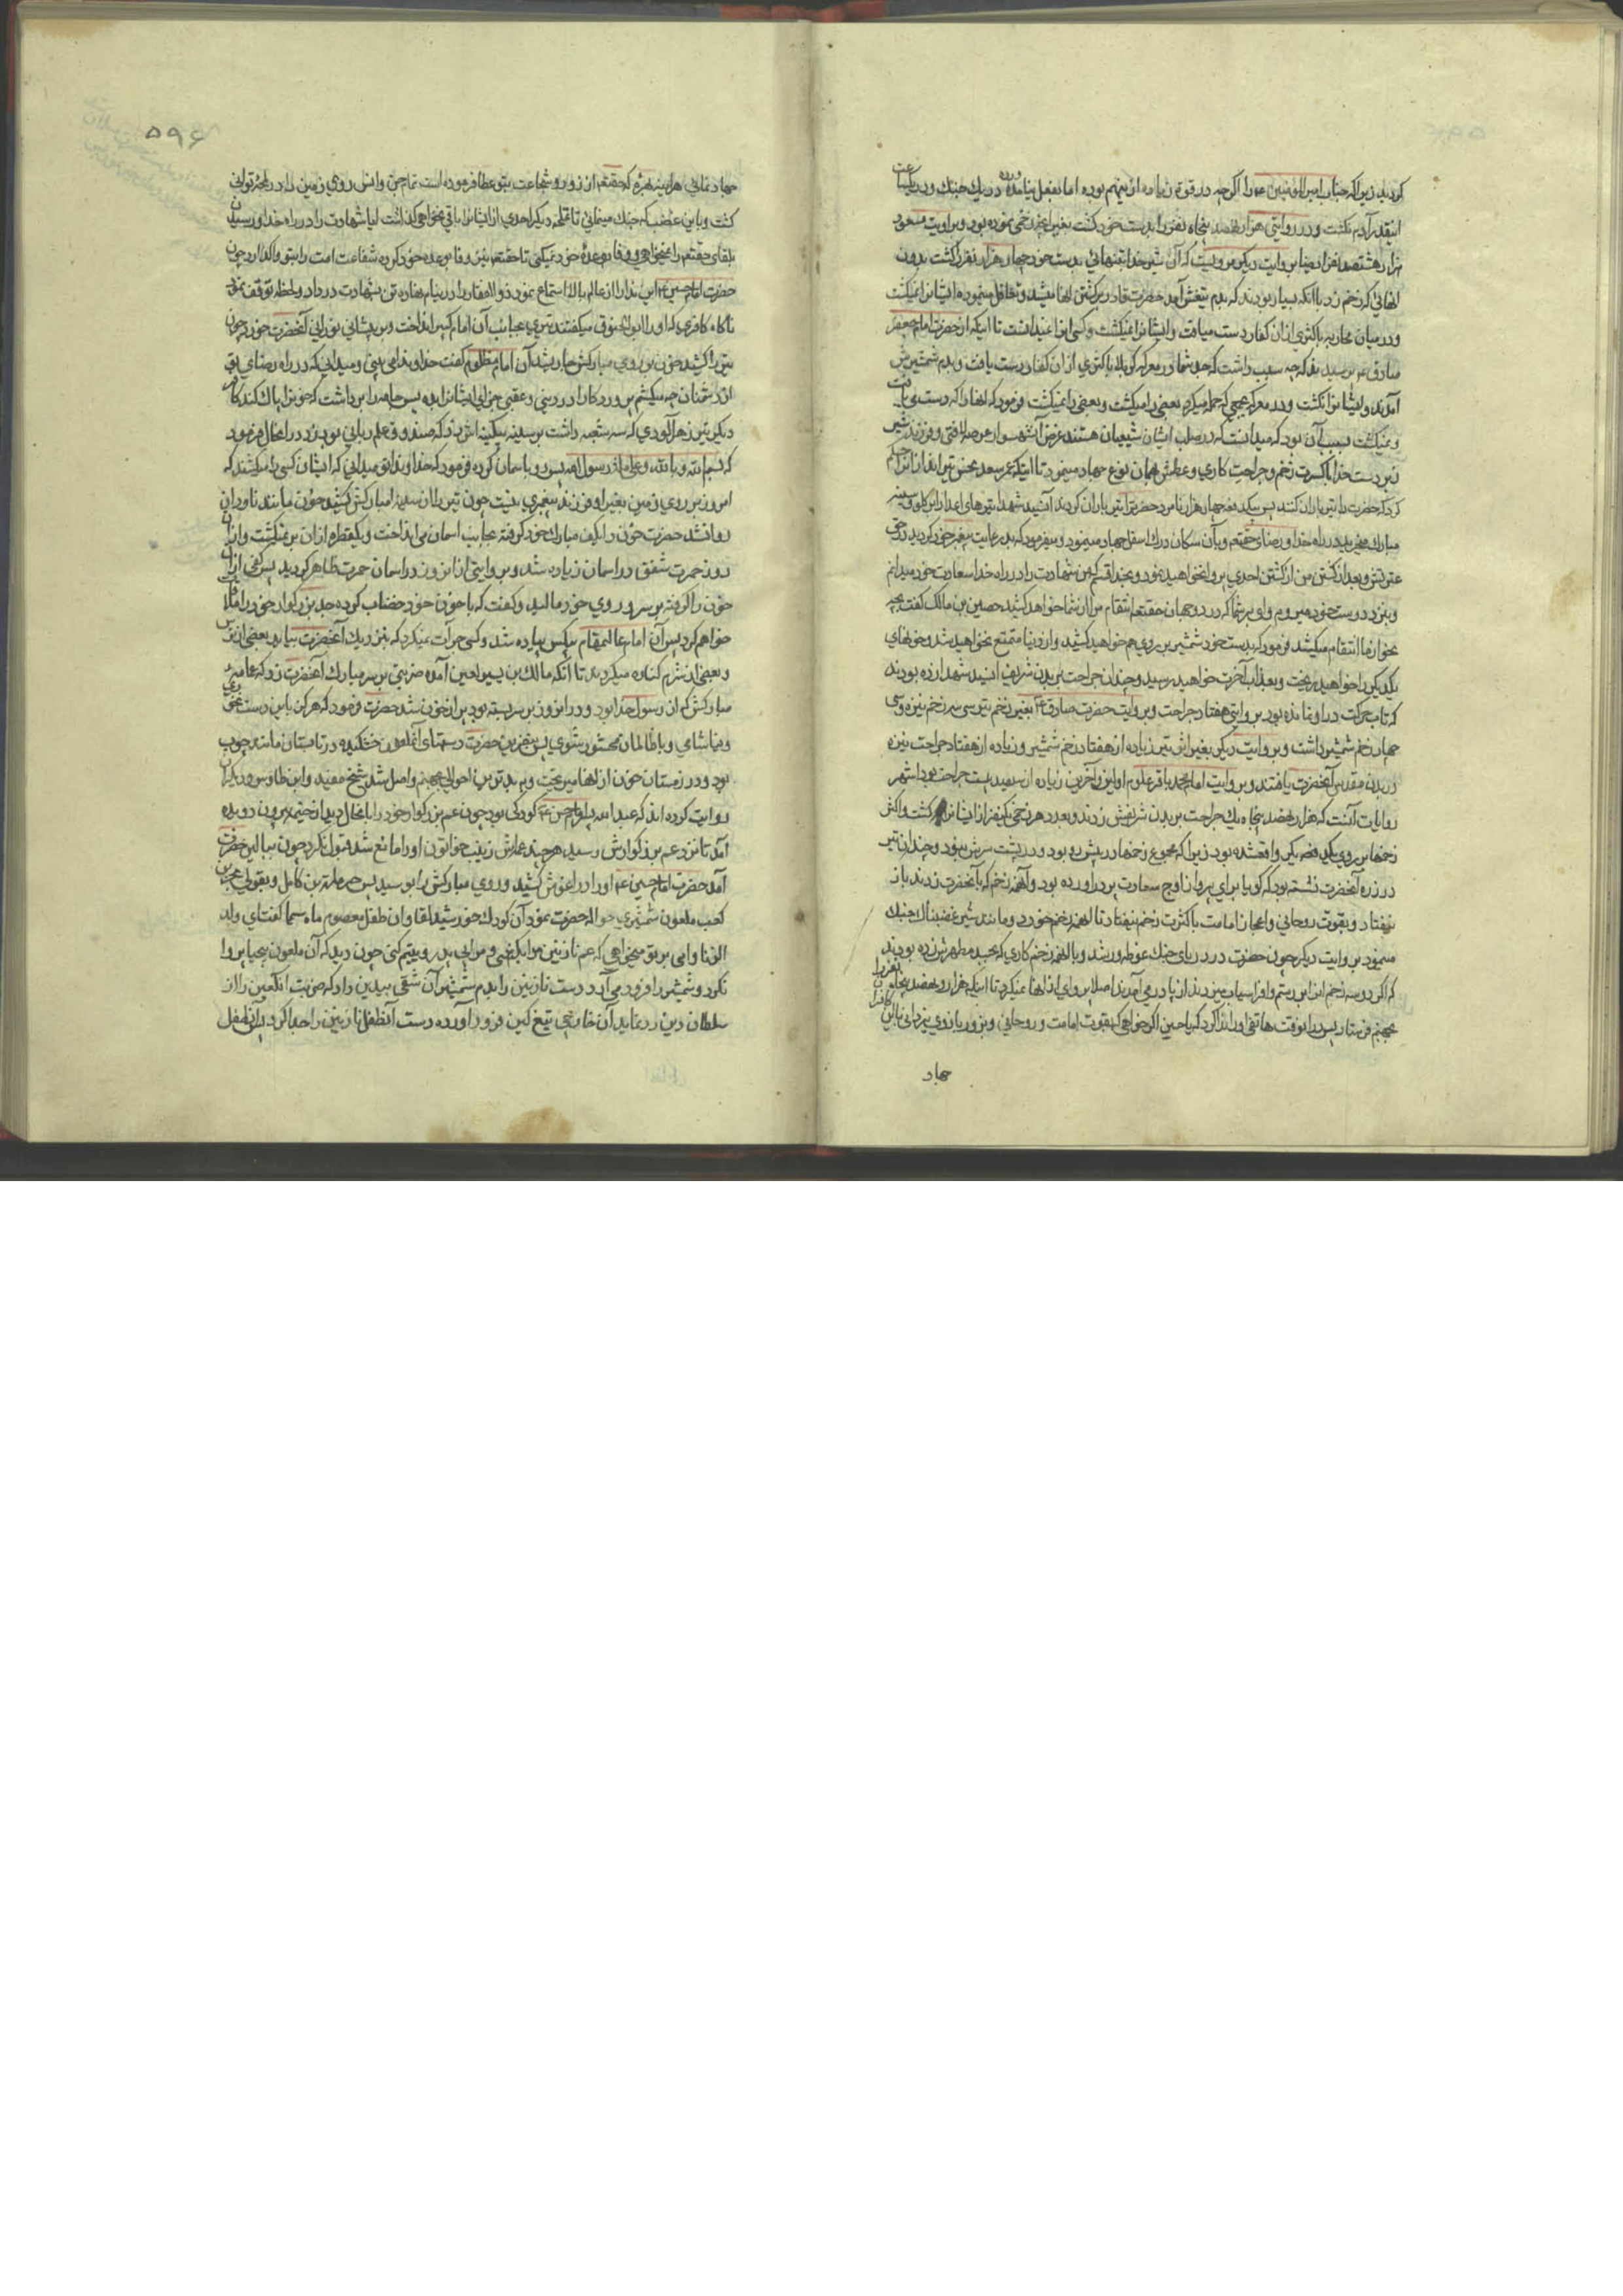 کردید زیرا که جناب امیر المؤمنین ع را اگرچه در قوة زیاده ازینهم بوده اما بفعل نیامده و در یک جنک و در یکساعت
اینقدر آدم نکشت و در روایتی هزار و نهصد پنجاه نفر را بدست خود کشت بغیر انچه زخمی نموده بود و بروایت مسعود
هزار هشتصد نفر از
آنهائی که زخم زد با آنکه بسیار بودند که بدم تیغش آمد حضرت قادر بر کشتن آنها میشد و تغافل مینموده ایشانرا نمیکشت
و در میان محاربه باکثری از ان کفار دست مییافت و ایشانرا نمیکشت و کسی اینرا نمیدانست تا اینکه از حضرت امام جعفر
صادق ع پرسیدند که چه سبب داشت که جد شما در معرکه کربلا باکثری از ان کفار دست یافت و بدم شمشیرش
آمدند و ایشانرا نکشت و در معرکه بجمعی که حمله میکرد بعضی را میکشت و بعضی را نمیکشت فرمود که انها را که دست می یافت
و نمیکشت بسبب آن بود که میدانست که در صلب ایشان شیعیان هستند غرض آنشهسوار عرصه لافتی و فرزند شیر
زبردست خدا با کثرت زخم و جراحت کاری و عطش همان نوع جهاد مینمود تا اینکه عمر سعد بحصین تیرانداز انرا حکم
کرد که حضرت را تیر باران کنند پس بیکدفعه چهار هزار نامرد حضرترا تیر باران کردند آن سید شهدا تیرهای اعدا را بر کلو و سینه
مبارک میخرید در راه خدا و رضای حقتعم و بآن سکان درک اسفل جهاد مینمود و میفرمود که بد رعایت پیغمبر خود کردید در حق
عترتش و بعد از کشتن من از کشتن احدی پروا نخواهید نمود و بخدا قسم که من شهادت را در راه خدا سعادت خود میدانم
و بنزد دوست خود میروم وای بر شما که در دو جهان حقتعم انتقام مرا از شما خواهد کشید حصین بن مالک گفت بچه
نحو از ما انتقام میکشد فرمود که بدست خود شمشیر بر روی هم خواهید کشید و از دنیا متمتع نخواهید شد و خونهای
یکدیکر را خواهید ریخت و بعذاب آخرت خواهید رسید و چندان جراحت بر بدن شریف انسید شهدا زده بودند
که تاب حرکت در او نمانده بود بروایتی هفتاد جراحت و بروایت حضرت صادق ع بغیر زخم تیر سی سه زخم نیزه و سی
چهار زخم شمشیر داشت و بروایت دیکر بغیر از تیر زیاده از هفتاد زخم شمشیر و زیاده از هفتاد جراحت نیزه
در بدن مقدس آنحضرت یافتند و بروایت امام محمد باقر علوم اولین و آخرین زیاده از سیصد بیست جراحت بود اشهر
روایات آنست که هزار و نهصد پنجاه یک جراحت بر بدن شریفش زدند و بعدد هر زخمی یکنفر از ایشانرا کشت و اکثر
زخمها بر روی یکدیکر واقعشده بود زیرا که مجموع زخمها در پیش رو بود و در پشت سرش نبود و چندان تیر
در زره آنحضرت نشسته بود که کویا برای پرواز اوج سعادت پر دراورده بود و آنهمه زخم که بآنحضرت زدند باز
نیفتاد و بقوت روحانی و اعجاز امامت با کثرت زخم نیفتاد تا انهمه زخم خورد و مانند شیر غضبناک جنک
مینمود بروایت دیکر چون حضرت در دریای جنک غوطه ور شد و با انهمه زخم کاری که بجسد مطهرش زده بودند
که اکر دو سه زخم انرا بر رستم و افراسیاب میزدند از پا در می آمدند اصلا پروای از انها نمیکرد تا اینکه هزار و نهصد پنجاه نفر را
بجهنم فرستاد پس در انوقت هاتفی او را ندا کرد که یا حسین اکر خواهی که بقوت امامت و روحانی و بزور بازوی یزدانی با این
جهاد
۵۹۶
جهاد نمائی هراینه
کشت و باین غضب که جنک مینمائی تا بملحه دیکر احدی از ایشانرا باقی نخواهی کذاشت ایا شهادت را در راه خدا و رسیدن
بلقای حقتعم را نمیخواهی و وفا بوعدهٔ خود نمیکنی تا حقتعم نیز وفا بوعده خود کرده شفاعت امت را بتو واکذارد چون
حضرت امام حسین ع این ندا را از عالم بالا استماع نمود ذوالفقار را در نیام نهاده تن بشهادت در داد و لحظه توقف نمود
ناکاه کافری که او را ابوالحنوق میکفتند تیری بجانب آن امام کبیر انداخت و بر پیشانی نورانی آنحضرت خورد چون
تیر را کشید خون بر روی مبارکش جاری شد آن امام مظلوم گفت خداوندا می بینی و میدانی که در راه رضای تو
از دشمنان چه میکشم پروردکارا در دنیی و عقبی جزای ایشانرا بده پس جامه را برداشت که خونرا پاک کند که کافر
دیکر تیر زهرآلودی که سه شعبه داشت بر سینه بیکینه اش زد که صندوق علم ربانی بود زد در انحال فرمود
که بسم الله و بالله و علی ملة رسول الله پس رو باسمان کرده فرمود که خداوندا تو میدانی که ایشان کسی را میکشند که
امروز بر روی زمین بغیر او فرزند پیغمبری نیست چون تیر را از سینهٔ مبارکش کشید خون مانند ناودان
روانشد حضرت خون را بکف مبارک خود کرفته بجانب اسمان می انداخت و یکقطره از ان بر نمیکشت و از ان
روز حمرت شفق در اسمان زیاده شد و بروایتی از انروز در اسمان حمرت ظاهر کردید پس کفی از ان
خون را کرفته بر سر و روی خود مالید و کفت که با خون خود خضاب کرده جد بزرکوار خود را ملاقات
خواهم کرد پس آن امام عالیمقام بیکس پیاده شد و کسی جرأت نمیکرد که بنزدیک آنحضرت بیاید بعضی از ترس
و بعضی از شرم کناره میکردند تا آنکه مالک بن یسر لعین آمد ضربتی بر سر مبارک آنحضرت زد که عامهٔ
مبارکش که از رسول خدا بود و در انروز بر سر بسته بود پر از خون شد حضرت فرمود که هرکز باین دست نخوری
و نیاشامی و با ظالمان محشور شوی پس بنفرین حضرت دستهای آنملعون خشکیده در تابستان مانند چوب
بود و در زمستان خون از انها میریخت و ببدترین احوالی بجهنم واصل شد شیخ مفید و ابن طاوس و دیکران
روایت کرده اند که عبدالله پسر امام حسن ع کودکی بود چون عم بزرکوار خود را بانحال دید از خیمه بیرون دویده
آمد تا نزد عم بزرکوارش رسید هرچند عمه اش زینب خواتون او را مانع شد قبول نکرد چون ببالین حضرت
آمد حضرت امام حسین ع او را در اغوش کشید و روی مبارکش را بوسید پس حرملة بن کاهل و بقولی بحر بن
کعب ملعون شمشیری حواله حضرت نمود آن کودک خورشید لقا و ان طفل معصوم ماه سیما گفت ای ولد
الزنا وای بر تو میخواهی که عم نازنین مرا بکشی و مرا بی پدر و یتیم کنی چون دید که آن ملعون بیحیا پروا
نکرد و شمشیر را فرود می آورد دست نازنین را بدم شمشیر آن شقی بیدین داد که ضربت انلعین را از
سلطان دین رد نماید آن خارجی تیغ کین فرود آورده دست آنطفل نازنین را جدا کرد پس آن طفل